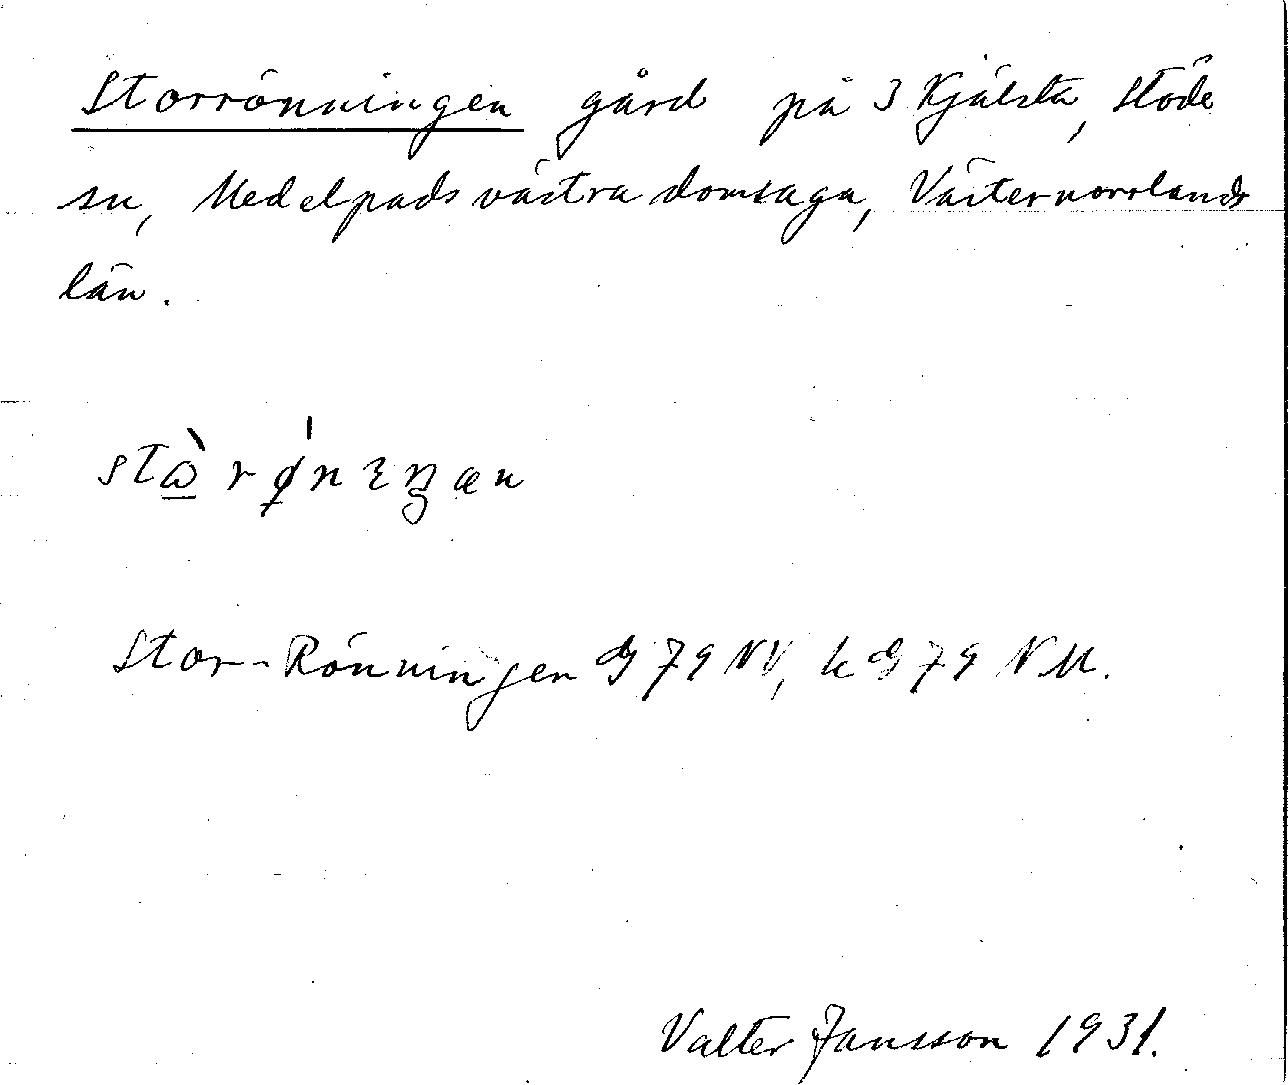 Storrönningen gård på 3 Kjälsta, Stöde
sn, Medelpads västra domsaga, Västernorrlands
län.
Stor-Rönningen G 79 NV, k G 79 NM.
Valter Jansson 1931.